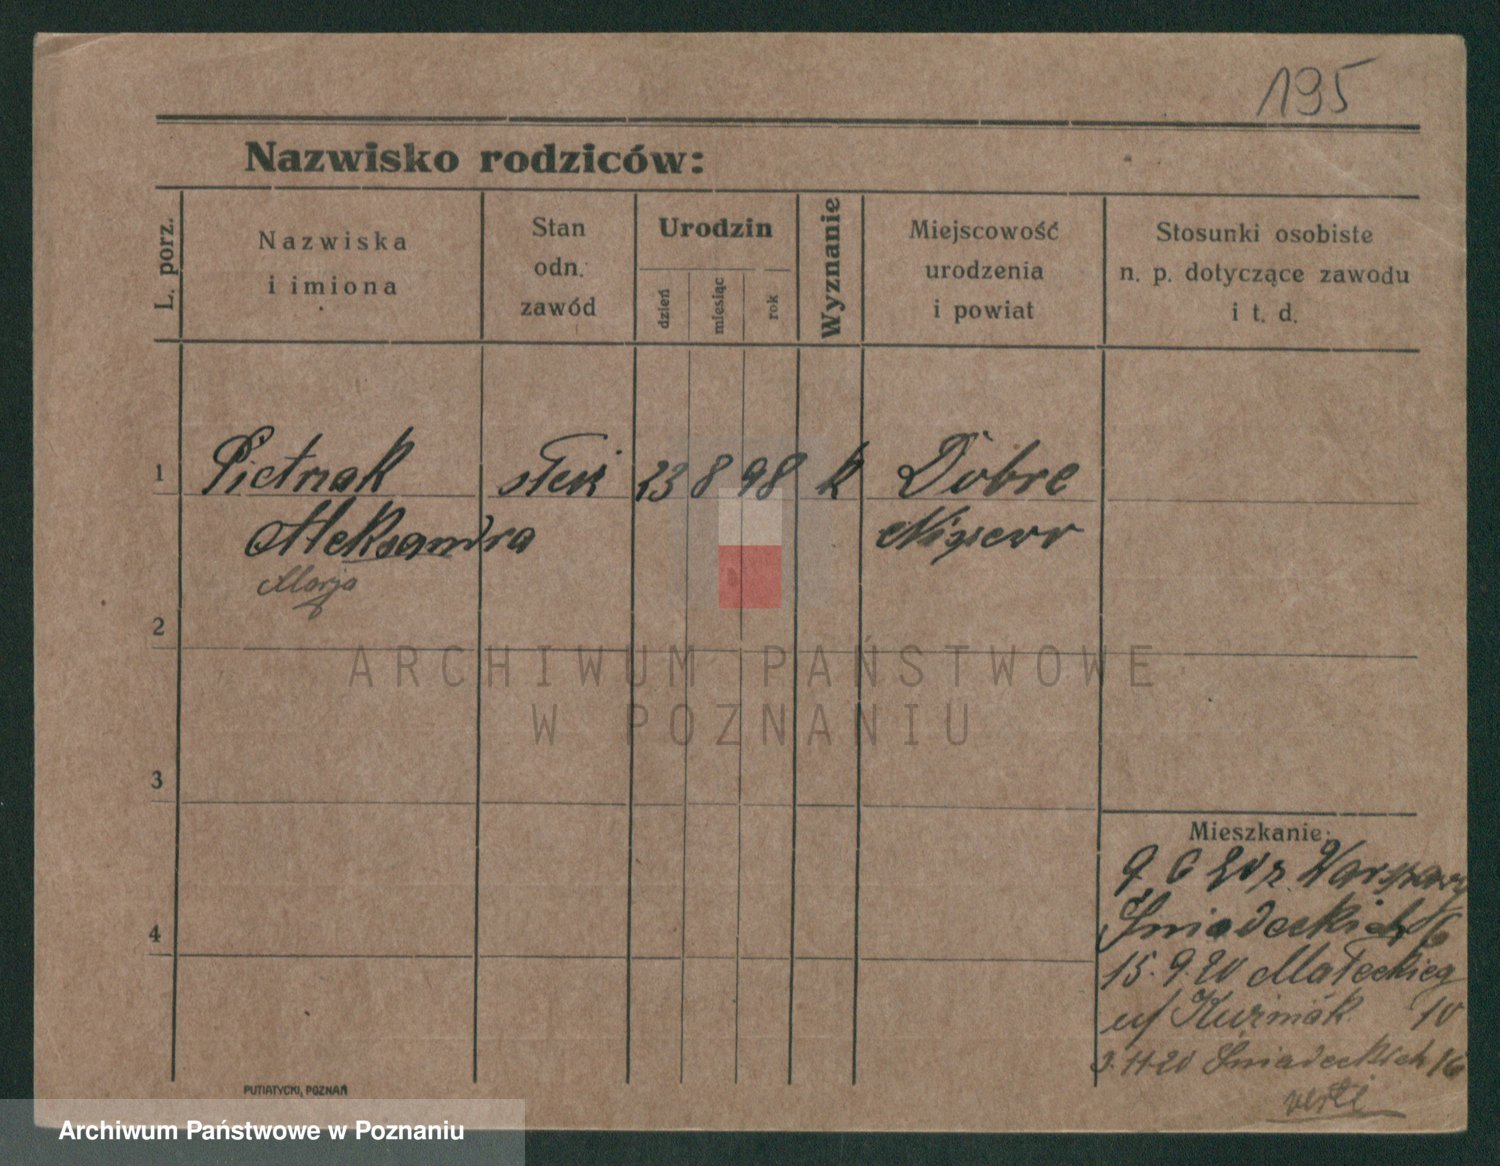 195
Nazwisko rodziców:
L. porz.
Nazwiska
i imiona
Stan
odn.
zawód
Urodzin
dzień
miesiąc
rok
Wyznanie
Miejscowość
urodzenia
i powiat
Stosunki osobiste
n. p. dotyczące zawodu
i t. d.
1 Pietrzak 23 8 98 k Dobre
Aleksandra
Marja
2
ARCHIWUM PAŃSTWOWE
W POZNANIU
3
Mieszkanie:
9 6 20 z Warszawy
4 Śniadeckich 16
15.9.20 Małeckieg
u/ Kuźniak 10
3.11 20 Śniadeckich 16
verte
PUTIATYCKI, POZNAŃ
Archiwum Państwowe w Poznaniu